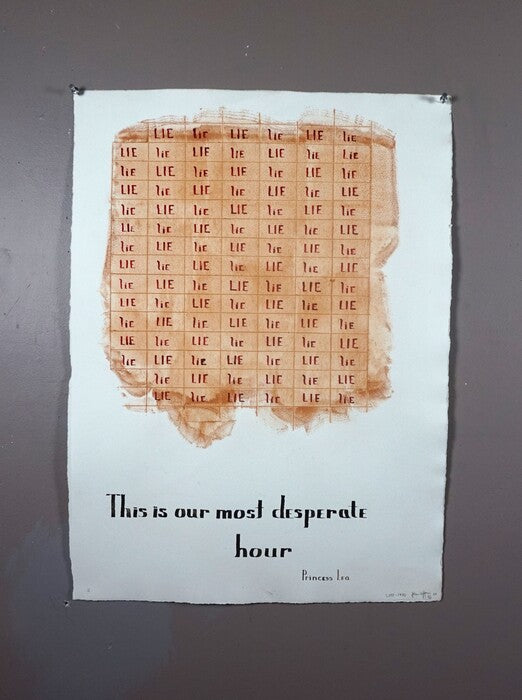 LIE lie LIE lie LIE lie
LIE lie LIE lie LIE lie LIE
lie LIE lie LIE lie LIE lie
LIE lie LIE lie LIE lie LIE
lie LIE lie LIE lie LIE lie
LIE lie LIE lie LIE lie LIE
lie LIE lie LIE lie LIE lie
LIE lie LIE lie LIE lie LIE
lie LIE lie LIE lie LIE lie
LIE lie LIE lie LIE lie LIE
lie LIE lie LIE lie LIE lie
LIE lie LIE lie LIE lie LIE
lie LIE lie LIE lie LIE lie
lie LIE lie LIE lie LIE
LIE lie LIE lie LIE lie
This is our most desperate
hour
Princess Lea